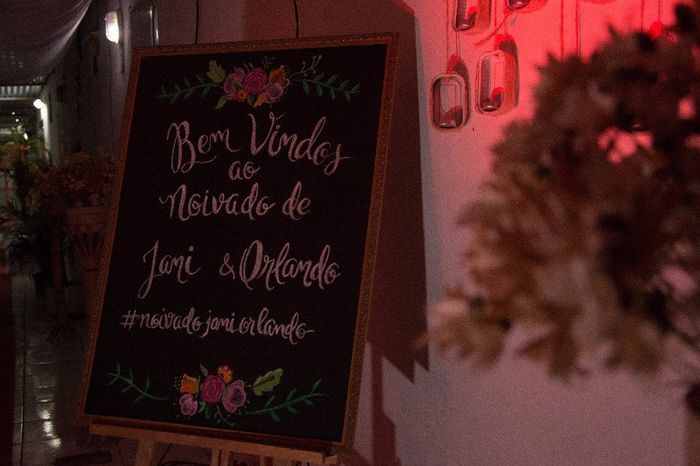 Bem Vindos
ao
Noivado de
Jani & Orlando
#noivadojaniorlando